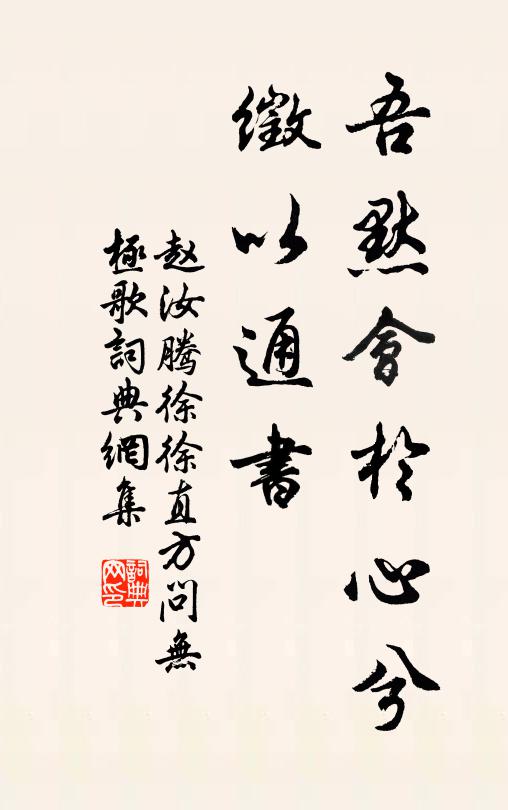 吾默會於心兮
徵以通書
赵汝腾徐徐直方問無
極歌詞典網集
詞典
网印